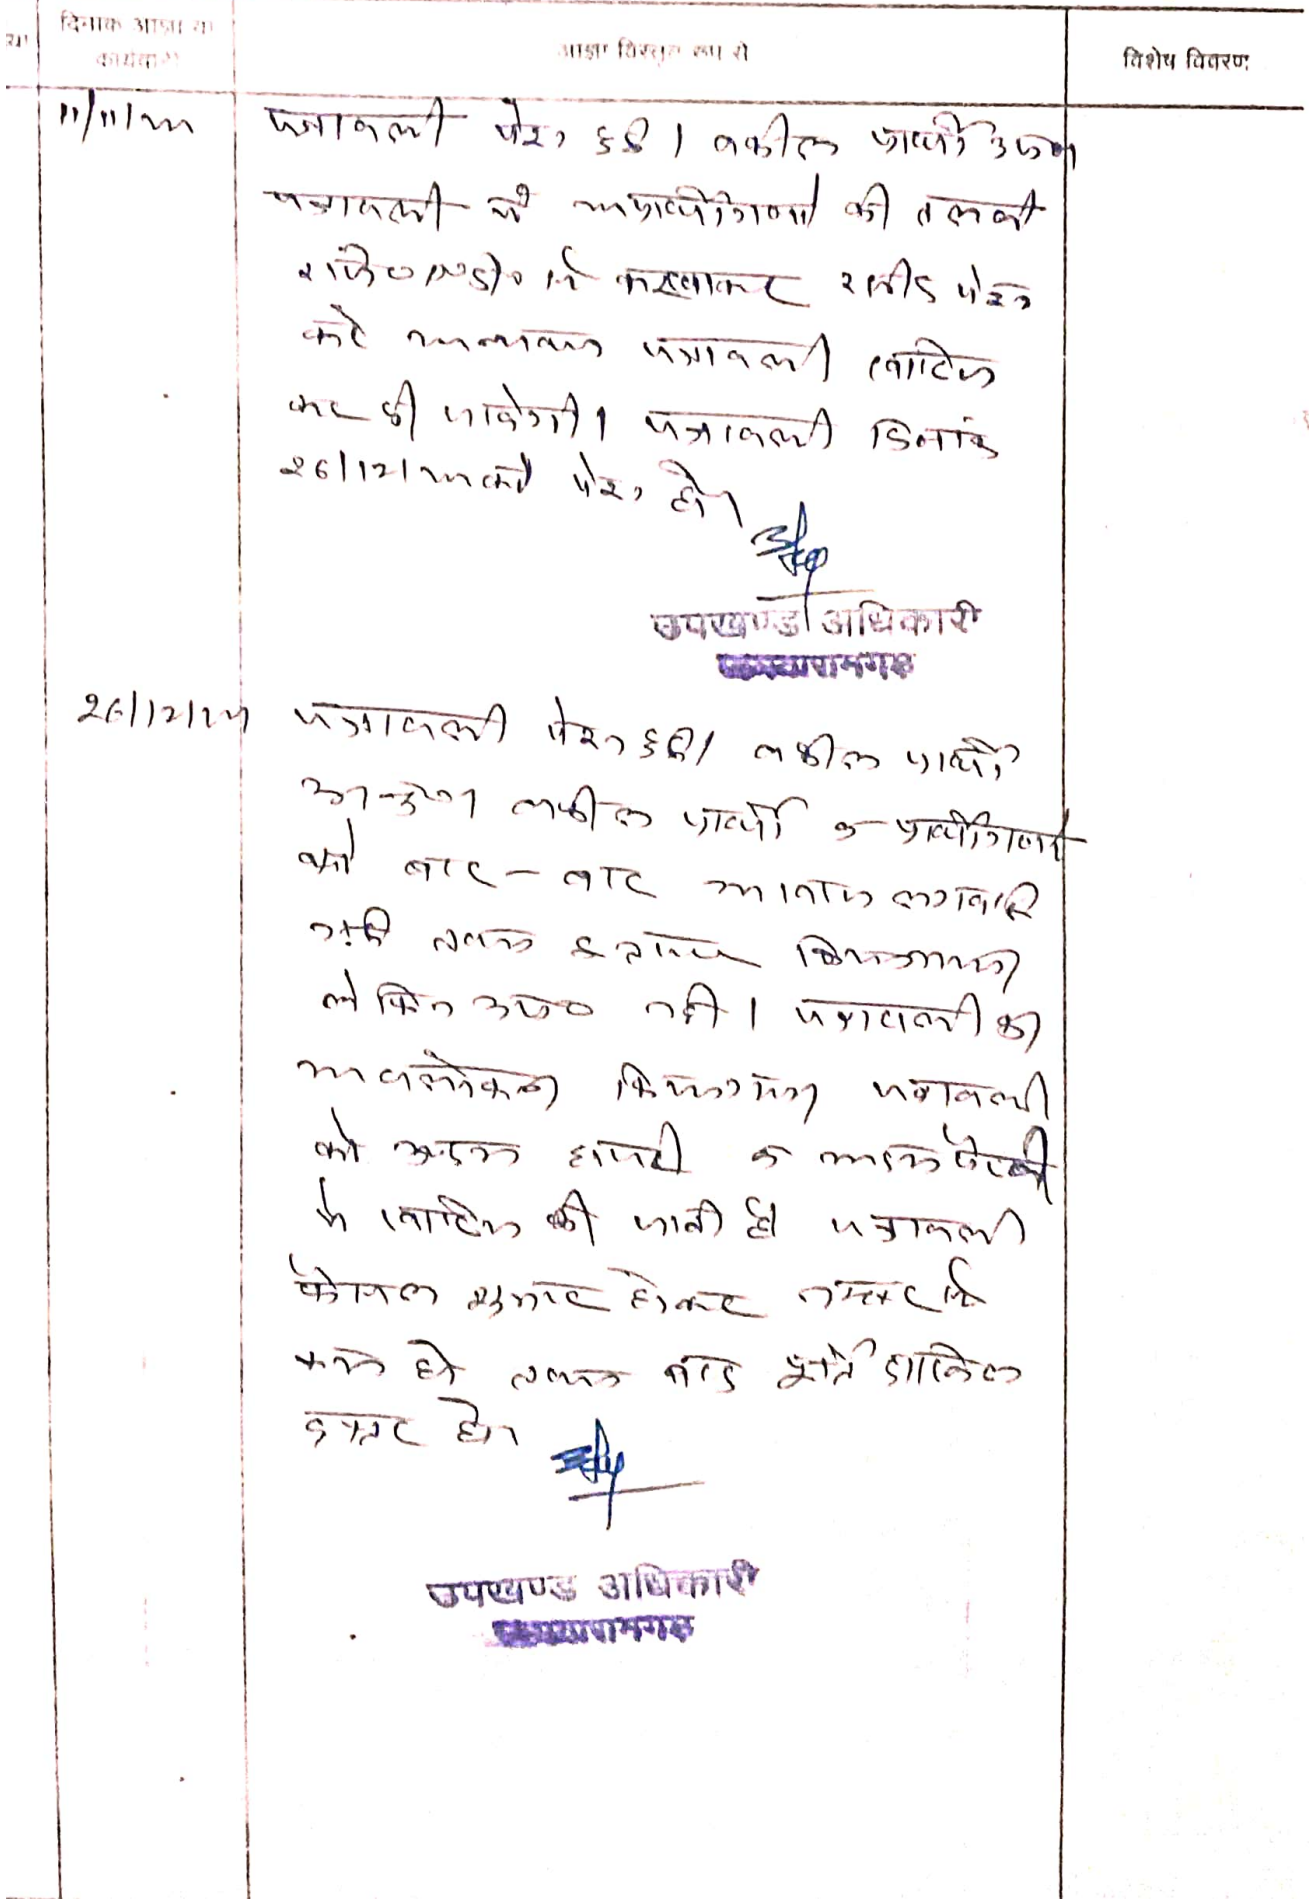 दिनांक आज्ञा या
कार्यवाही
आज्ञा विस्तृत रूप से
विशेष विवरण
पत्रावली पेश हुई। वकील प्रार्थी उप०
पत्रावली में अप्रार्थीगणों की तलबी
रजि० ए०डी० से करवाकर रसीद पेश
करे अन्यथा पत्रावली खारिज
कर दी जावेगी। पत्रावली दिनांक
26/12/ को पेश हो।
उपखण्ड अधिकारी
26/12/
पत्रावली पेश हुई। वकील प्रार्थी
वकील प्रार्थी व प्रार्थीगण
को बार-बार आवाज लगवाई
गई किया गया
लेकिन उप० नही। पत्रावली का
अवलोकन किया गया पत्रावली
को अदम हाजरी व अदम पैरवी
में खारिज की जाती है। पत्रावली
फैसल शुमार होकर नम्बर से
कम हो बाद पूर्ति दाखिल
दफ्तर हो।
उपखण्ड अधिकारी